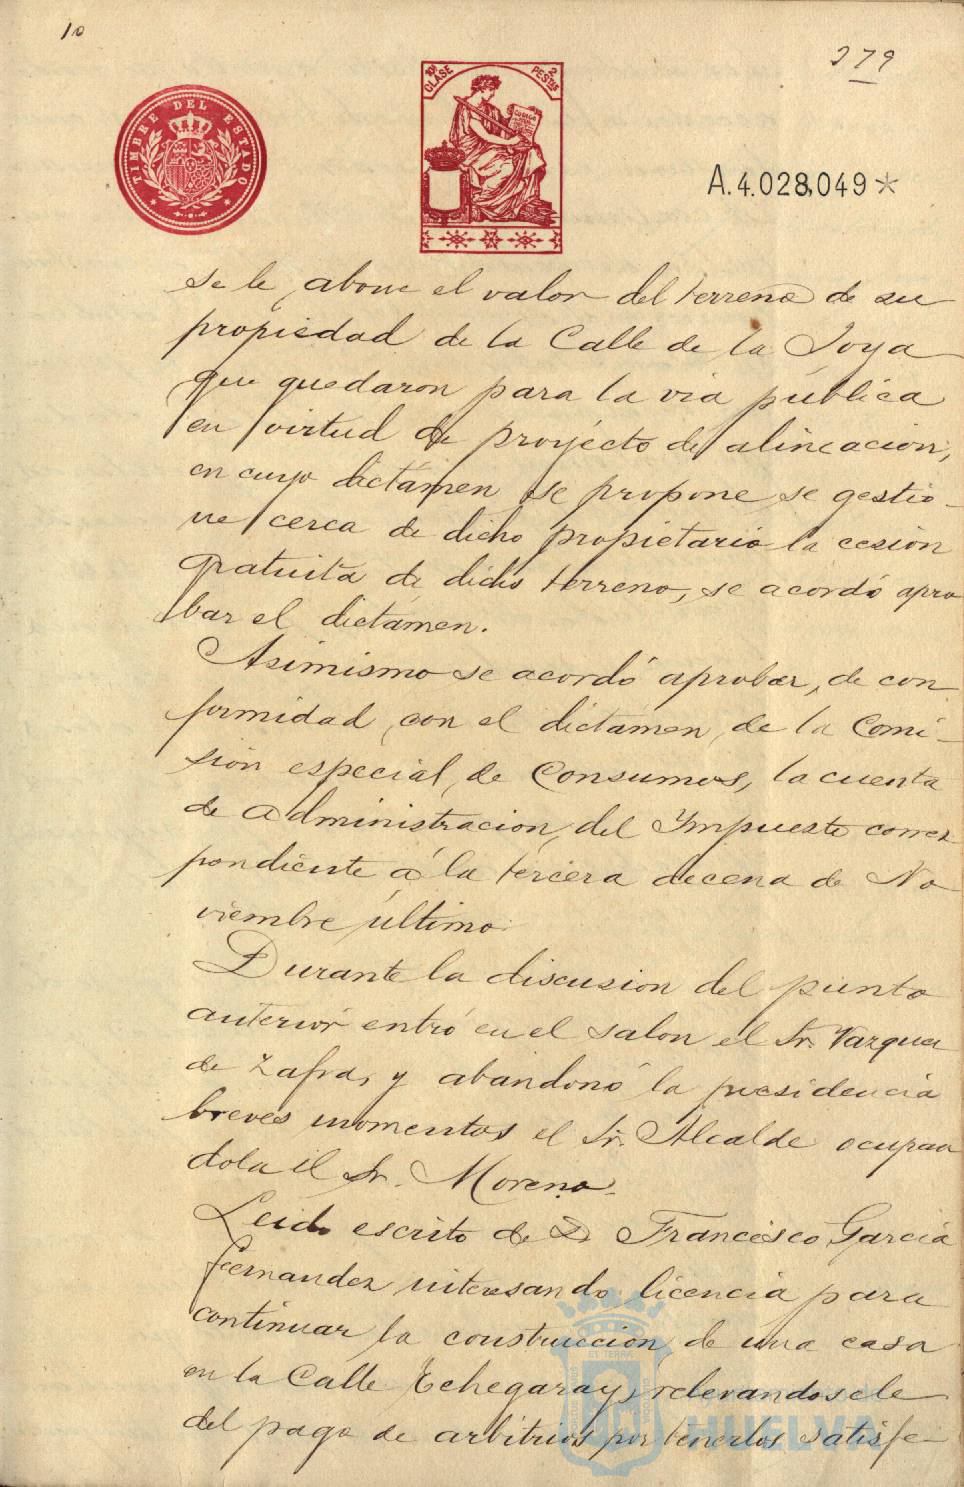 10
279
TIMBRE DEL ESTADO
10ª CLASE
2 PESTAS
A.4.028,049*
se le abone el valor del terreno de su
propiedad de la Calle de la Joya
que quedaron para la via pública
en virtud de proyécto de alineacion,
en cuyo dictámen se propone se gestio-
ne cerca de dicho propietario la cesión
gratuita de dicho terreno, se acordó apro
bar el dictámen.
Asimismo se acordó aprobar, de con
formidad con el dictámen de la Comi-
sión especial de Consumos, la cuenta
de administracion del Ympuesto corres
pondiente á la tercera decena de No
viembre último.
Durante la discusion del punto
anterior entró en el salon el Sr. Vazquez
de Zafra, y abandonó la presidencia
breves momentos el Sr. Alcalde ocupan
dola el Sr. Moreno.
Leido escrito de D. Francisco Garcia
Fernandez interesando licencia para
continuar la construccion de una casa
en la Calle Echegaray, relevandosele
del pago de arbitrios por tenerlos satisfe-
HUELVA